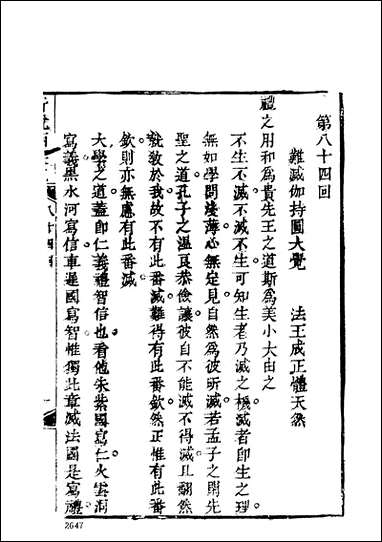 第八十四回
難滅伽持圓大覺　法王成正體天然
禮之用和爲貴先王之道斯爲美小大由之
不生不滅不滅不生可知生者乃滅之機滅者即生之理
無如學問淺薄心無定見自然爲彼所滅若孟子之閑先
聖之道孔子之溫良恭儉讓彼自不能滅不得滅且翻然
就敎於我故不有此番滅難得有此番欽然正惟有此番
欽則亦無慮有此番滅
大學之道蓋即仁義禮智信也看他朱紫國寫仁火雲洞
寫義黑水河寫信車遲國寫智惟獨此章滅法國是寫禮
八十四回
一
2647